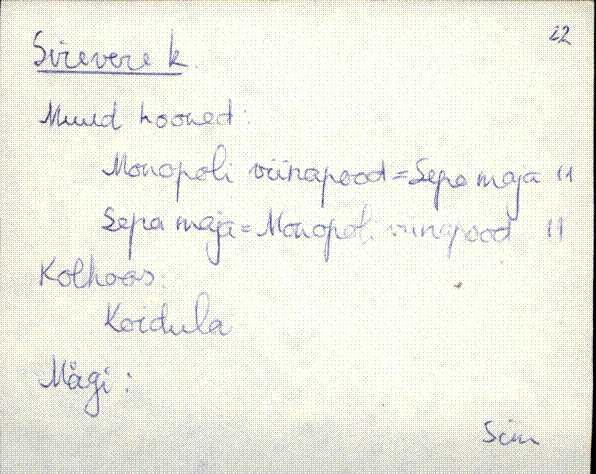 22
Sirevere k.
Muud hooned:
Monopoli viinapood = Sepa maja 11
Sepa maja = Monopoli viinapood 11
Kolhoos:
Koidula
Mägi: